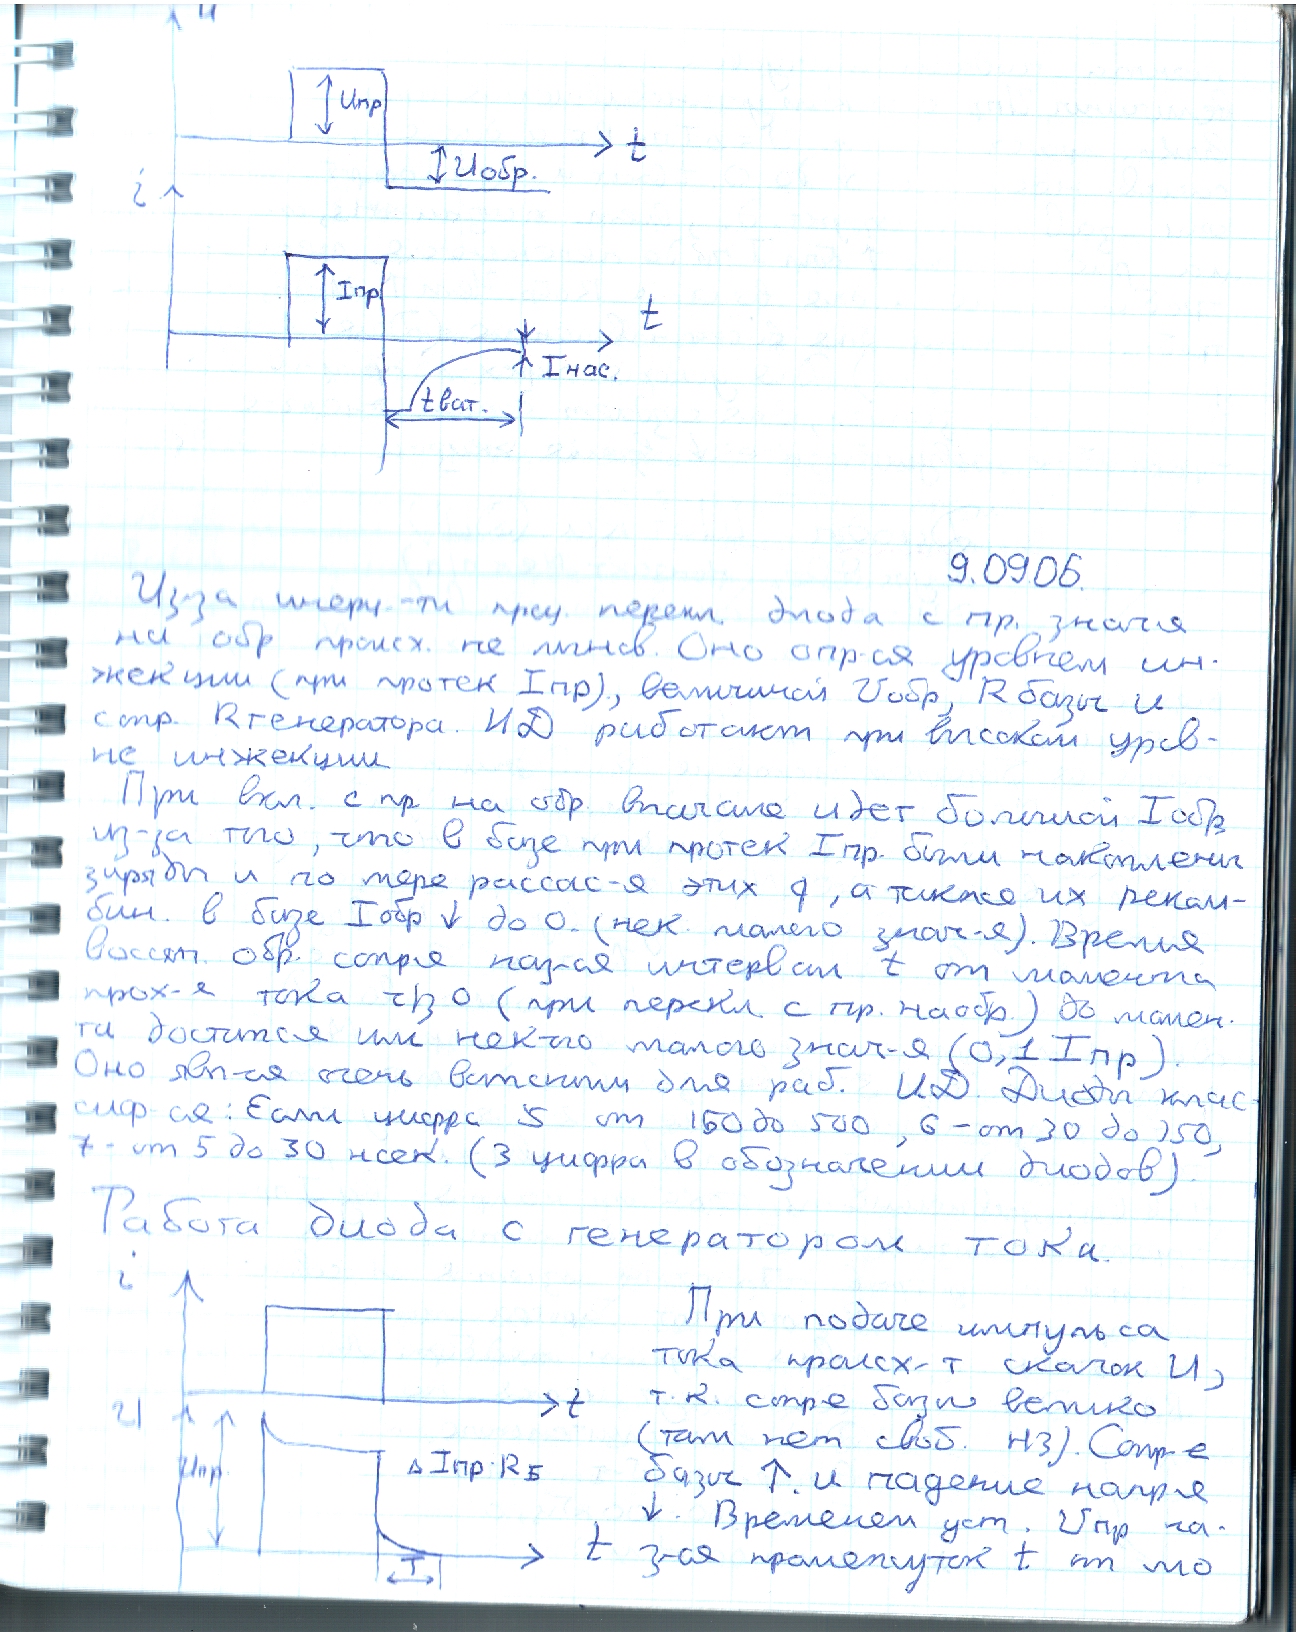 u
Uпр
t
Uобр.
i
Iпр
t
Iнас.
tват.
9.0906.
Из-за инерц-ти проц. перекл. диода с пр. знач-я
на обр происх. не мгнов. Оно опр-ся уровнем ин-
жекции (при протек Iпр), величиной Uобр, R базы и
сопр. Rгенератора. ИД работают при высоком уров-
не инжекции
При вкл. с пр на обр. вначале идет большой Iобр
из-за того, что в базе при протек Iпр. были накоплены
заряды и по мере рассас-я этих q, а также их реком-
бин. в базе Iобр ↓ до 0. (нек. малого знач-я). Время
восст. обр. сопр-я наз-ся интервал t от момента
прох-я тока ч/з 0 (при перекл с пр. на обр.) до момен.
та достиж-я им нек-го малого знач-я (0,1 Iпр).
Оно явл-ся очень важным для раб. И.Д. Диоды клас-
сиф-ся: Если цифра 5 от 150 до 500, 6 - от 30 до 150,
7 - от 5 до 30 нсек. (3 цифра в обозначении диодов).
Работа диода с генератором тока.
i
t
U
Uпр.
Δ Iпр·RБ
t
T
При подаче импульса
тока происх-т скачок U,
т.к. сопр-е базы велико
(там нет своб. НЗ). Сопр-е
базы ↑. и падение напр-я
↓. Временем уст. Uпр на-
з-ся промежуток t от мо